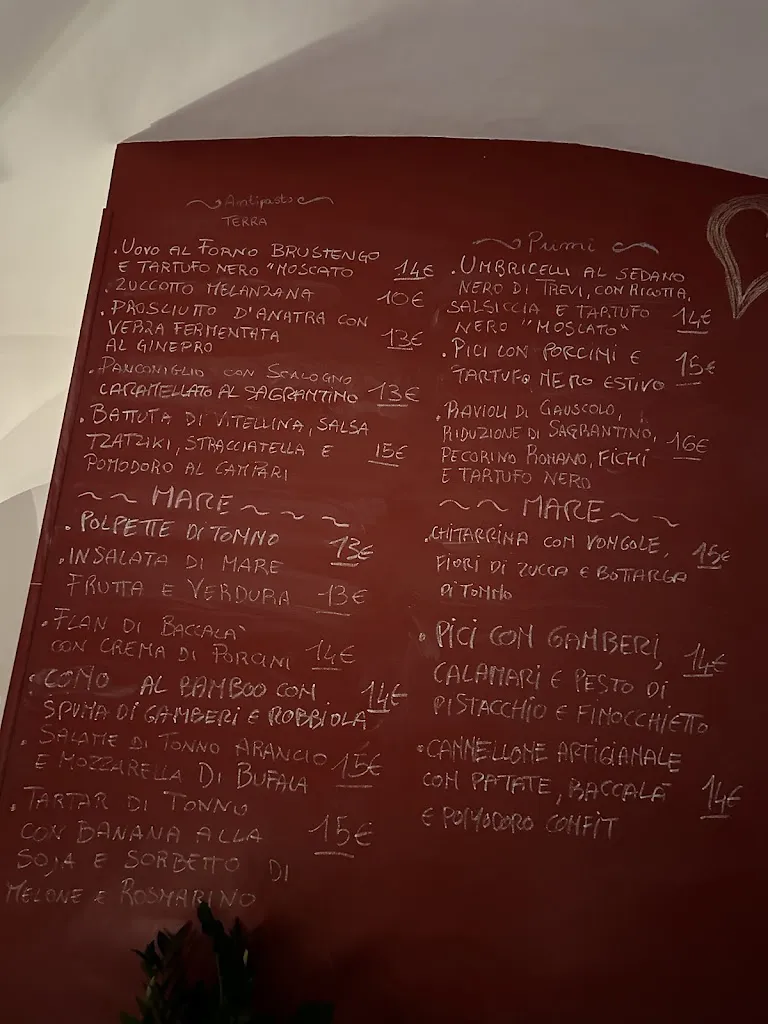 Antipasto
TERRA
. UOVO AL FORNO BRUSTENGO
E TARTUFO NERO "MOSCATO 14€
. ZUCCOTTO MELANZANA 10€
. PROSCIUTTO D'ANATRA CON
VERZA FERMENTATA 13€
AL GINEPRO
. PANCONIGLIO CON SCALOGNO
CARAMELLATO AL SAGRANTINO 13€
. BATTUTA DI VITELLINA, SALSA
TZATZIKI, STRACCIATELLA E 15€
POMODORO AL CAMPARI
~ ~ MARE ~ ~ ~
. POLPETTE DI TONNO 13€
. INSALATA DI MARE
FRUTTA E VERDURA 13€
. FLAN DI BACCALA'
CON CREMA DI PORCINI 14€
. CONO AL BAMBOO CON 14€
SPUMA DI GAMBERI E ROBBIOLA
. SALAME DI TONNO ARANCIO 15€
E MOZZARELLA DI BUFALA
. TARTAR DI TONNO
CON BANANA ALLA 15€
SOJA E SORBETTO DI
MELONE E ROSMARINO
~ Primi ~
. UMBRICELLI AL SEDANO
NERO DI TREVI, CON RICOTTA,
SALSICCIA E TARTUFO 14€
NERO "MOSCATO"
. PICI CON PORCINI E 15€
TARTUFO NERO ESTIVO
. RAVIOLI DI GUASCOLO,
RIDUZIONE DI SAGRANTINO, 16€
PECORINO ROMANO, FICHI
E TARTUFO NERO
~ ~ MARE ~ ~
. CHITARRINA CON VONGOLE, 15€
FIORI DI ZUCCA E BOTTARGA
DI TONNO
. PICI CON GAMBERI, 14€
CALAMARI E PESTO DI
PISTACCHIO E FINOCCHIETTO
. CANNELLONE ARTIGIANALE
CON PATATE, BACCALÀ 14€
E POMODORO CONFIT